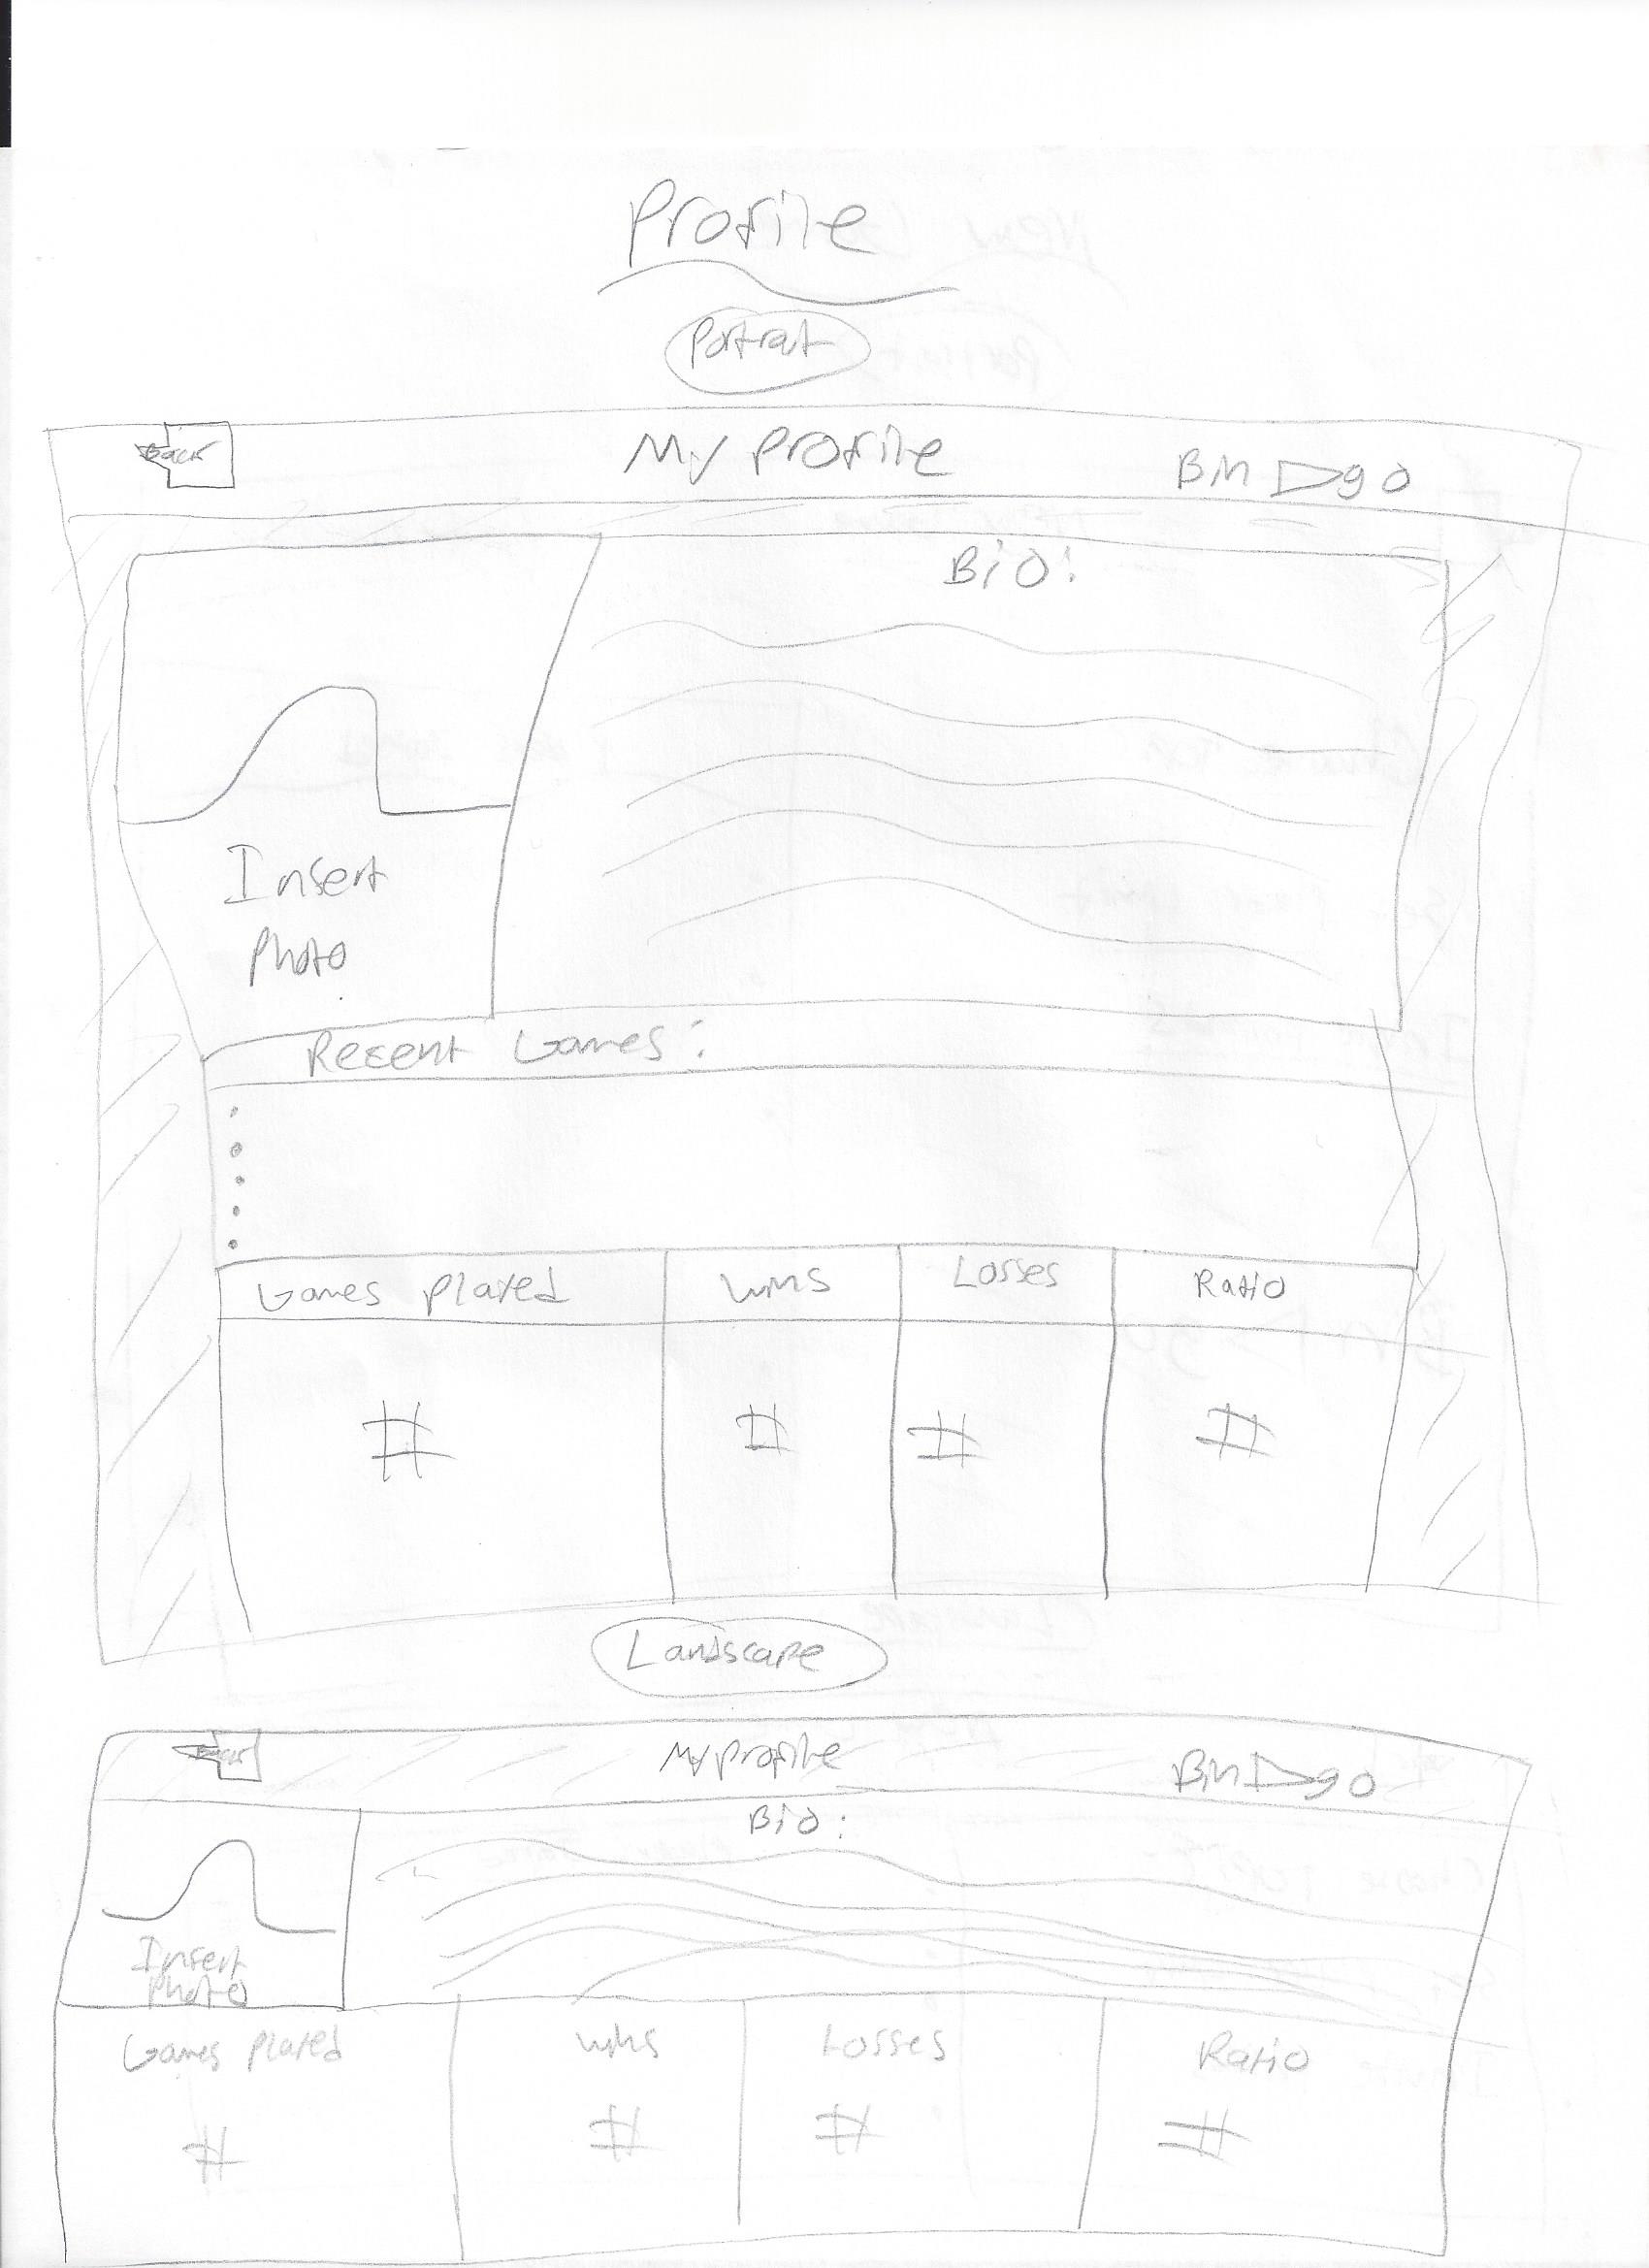 Profile
Portrait
Back My Profile Bin▷go
Bio:
Insert
Photo
Recent Games:
Games Played Wins Losses Ratio
# # # #
Landscape
Back My Profile Bin▷go
Bio:
Insert
Photo
Games Played Wins Losses Ratio
# # # #